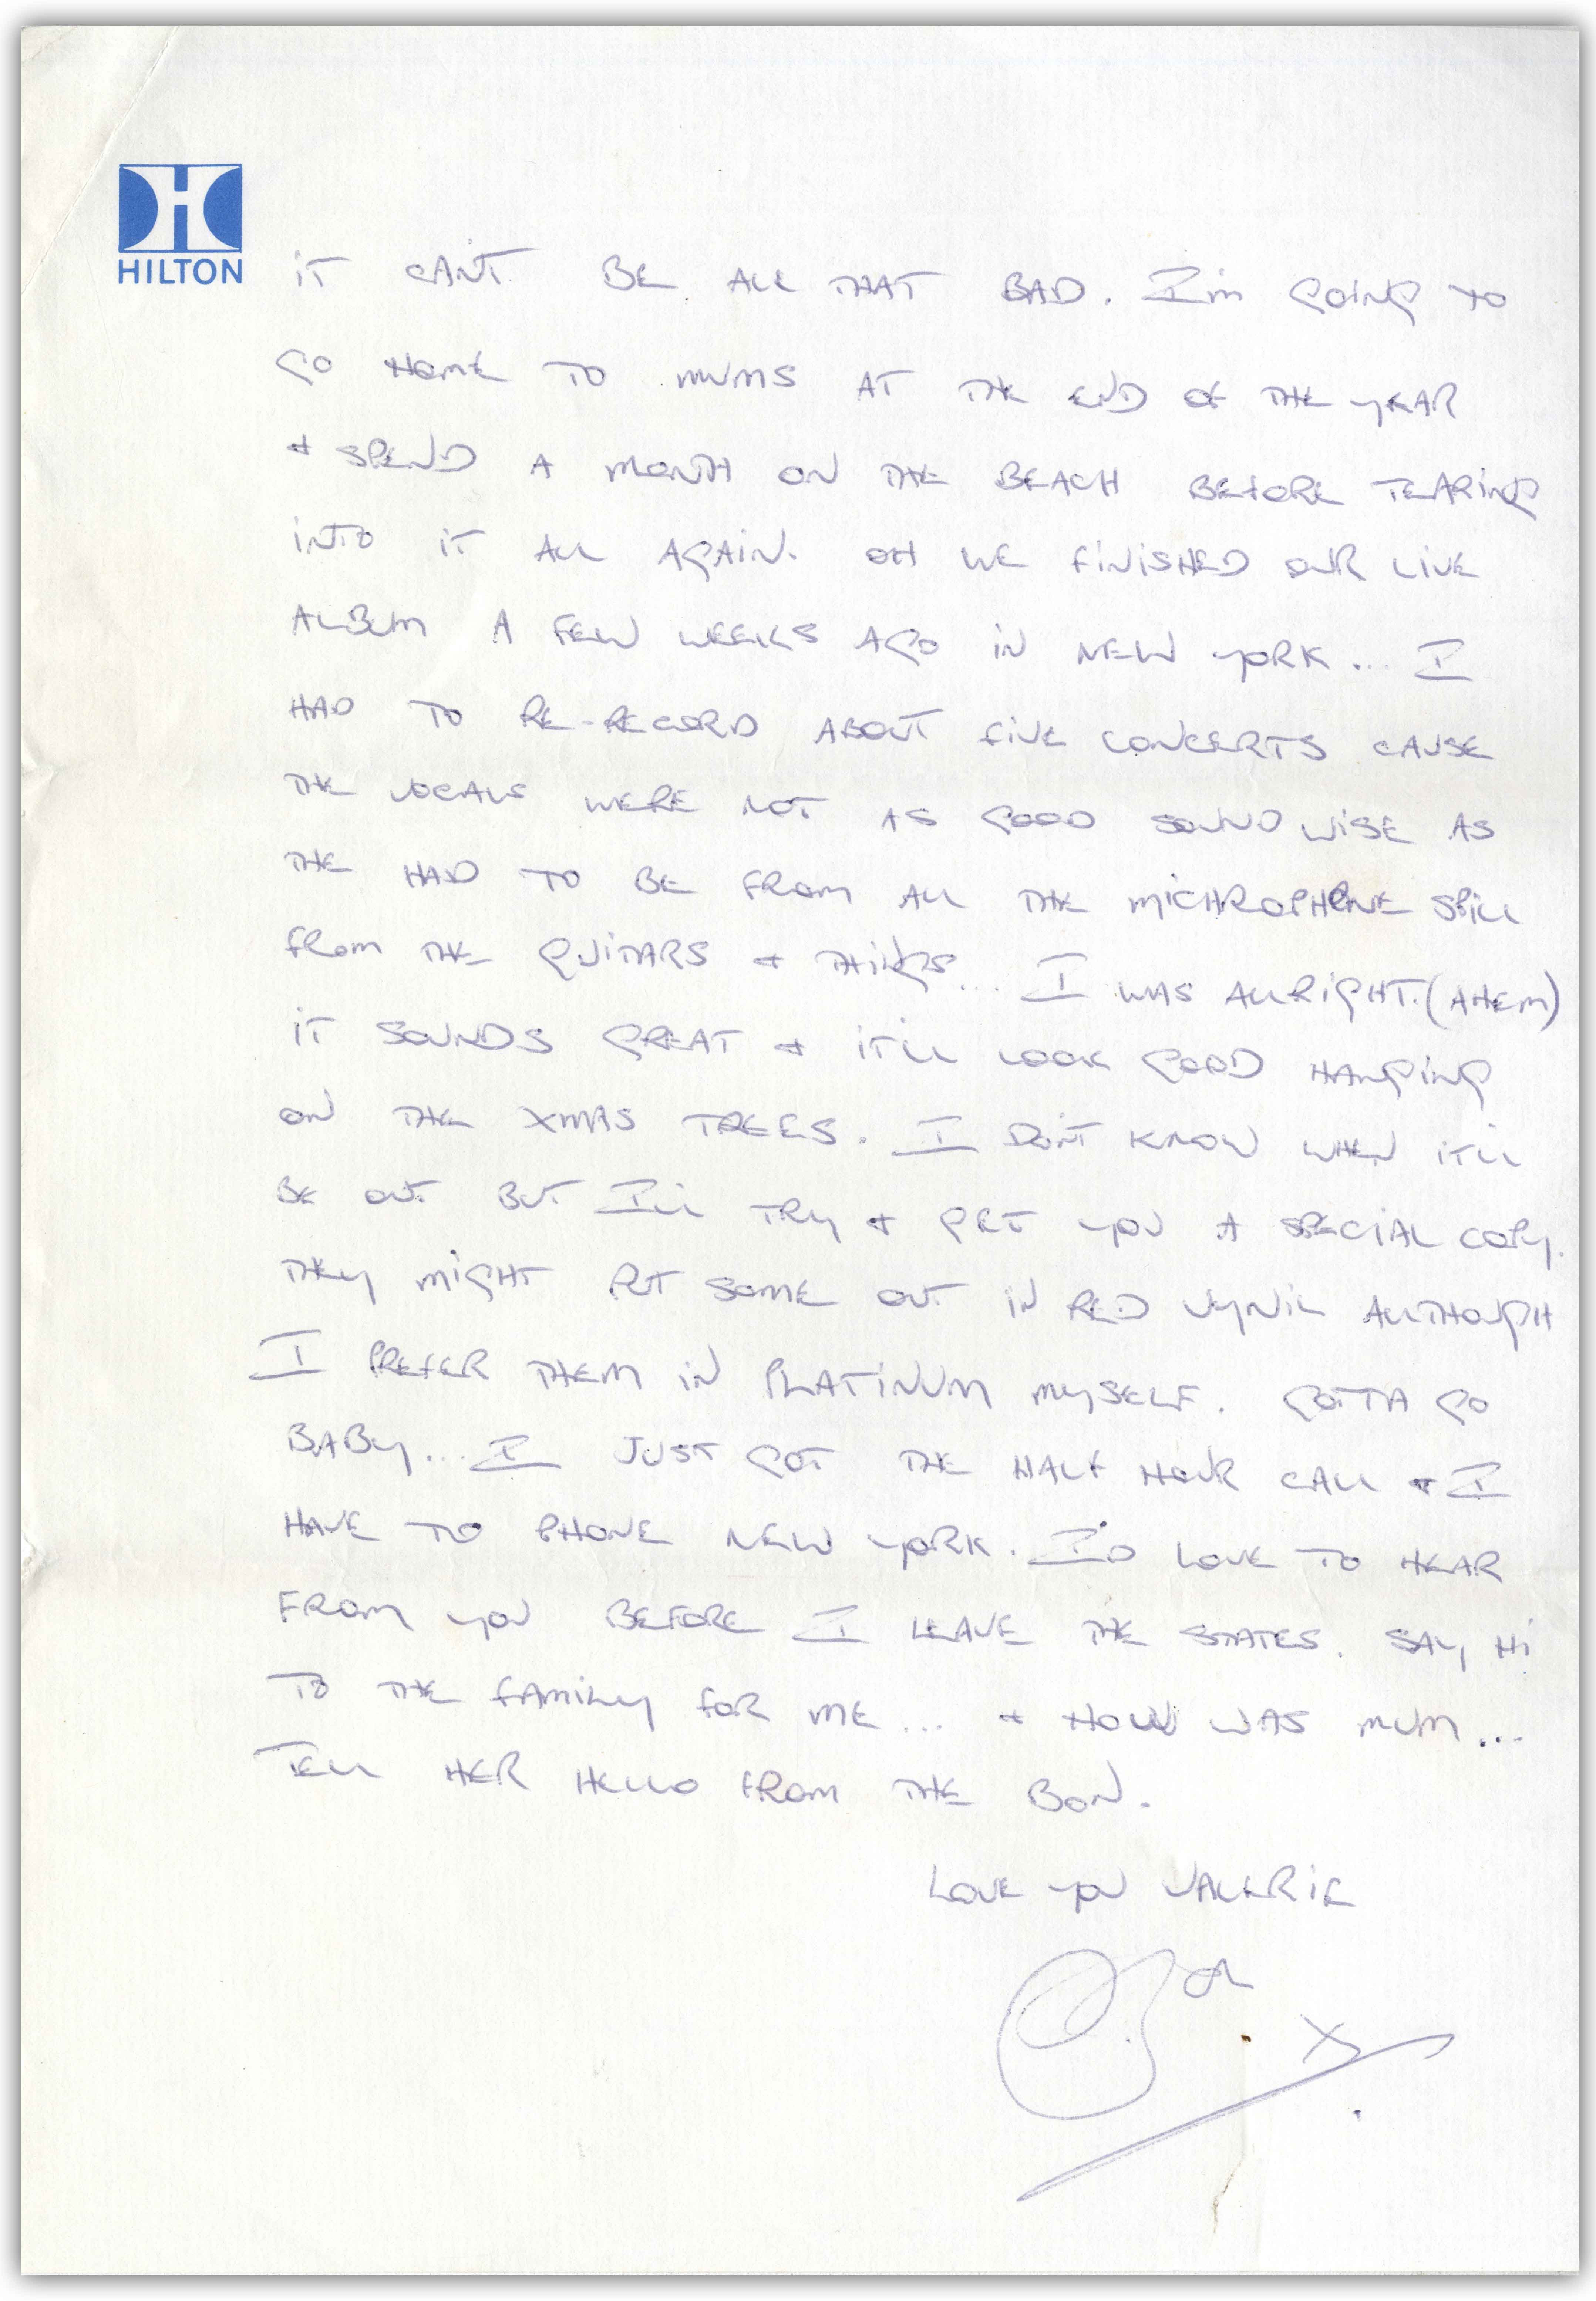 HILTON
IT CAN'T BE ALL THAT BAD. I'm GOING TO
GO HOME TO MUMS AT THE END OF THE YEAR
+ SPEND A MONTH ON THE BEACH BEFORE TEARING
INTO IT ALL AGAIN. OH WE FINISHED OUR LIVE
ALBUM A FEW WEEKS AGO IN NEW YORK... I
HAD TO RE-RECORD ABOUT FIVE CONCERTS CAUSE
THE VOCALS WERE NOT AS GOOD SOUND WISE AS
THE HAD TO BE FROM ALL THE MICHROPHONE SPILL
FROM THE GUITARS + THINGS... I WAS ALLRIGHT. (AHEM)
IT SOUNDS GREAT + IT'LL LOOK GOOD HANGING
ON THE XMAS TREES. I DON'T KNOW WHEN IT'LL
BE OUT. BUT I'LL TRY + GET YOU A SPECIAL COPY.
THEY MIGHT PUT SOME OUT IN RED VYNIL ALLTHOUGH
I PREFER THEM IN PLATINUM MYSELF. GOTTA GO
BABY... I JUST GOT THE HALF HOUR CALL + I
HAVE TO PHONE NEW YORK. I'D LOVE TO HEAR
FROM YOU BEFORE I LEAVE THE STATES. SAY HI
TO THE FAMILY FOR ME... + HOW WAS MUM...
TELL HER HELLO FROM THE BON.
LOVE YOU VALERIE
Bon
X